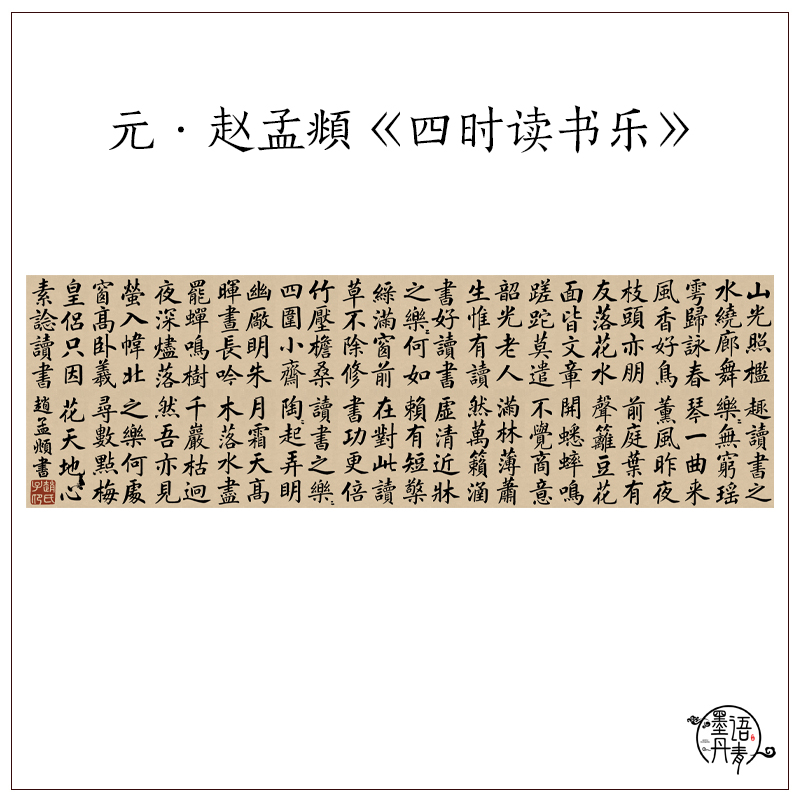 元·赵孟頫《四时读书乐》
山光照檻
水繞廊舞
雩歸詠春
風香好鳥
枝頭亦朋
友落花水
面皆文章
蹉跎莫遣
韶光老人
生惟有讀
書好讀書
之樂〻何如
綠滿窗前
草不除修
竹壓檐桑
四圍小齋
幽厰明朱
暉晝長吟
罷蟬鳴樹
夜深燼落
螢入幃北
窗髙卧羲
皇侣只因
素諗讀書
趣讀書之
樂〻無窮瑶
琴一曲来
薰風昨夜
前庭葉有
聲籬豆花
開蟋蟀鳴
不覺商意
滿林薄蕭
然萬籟涵
虛清近牀
賴有短檠
在對此讀
書功更倍
讀書之樂〻
陶〻起弄明
月霜天髙
木落水盡
千巖枯迥
然吾亦見
之樂何處
尋數點梅
花天地心
趙孟頫書
趙氏子昂
墨语丹青